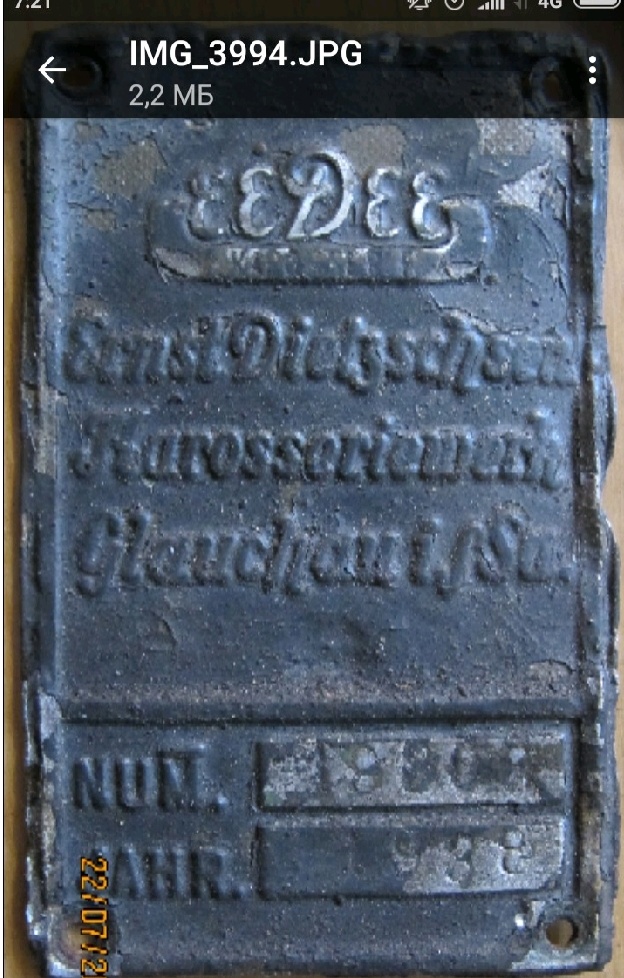 7:21
4G
IMG_3994.JPG
2,2 МБ
EEDEE
Ernst Dietzsch
Karosseriewerk
Glauchau i./Sa.
NUM.
JAHR. 938
22/07/2